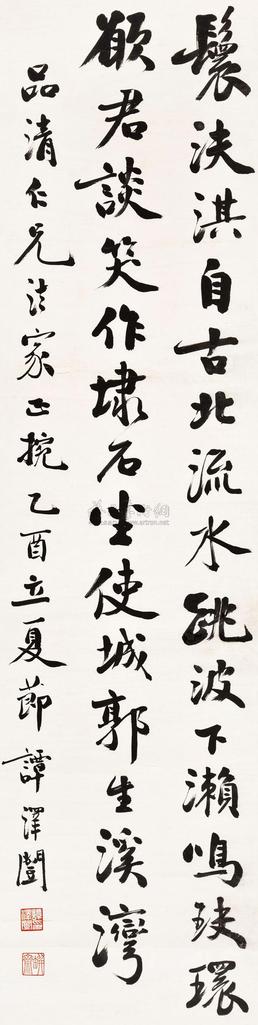 鬟決淇自古北流水跳波下瀨鳴玦環
願君談笑作埭石坐使城郭生溪灣
品清仁兄法家正捥乙酉立夏節譚澤闓